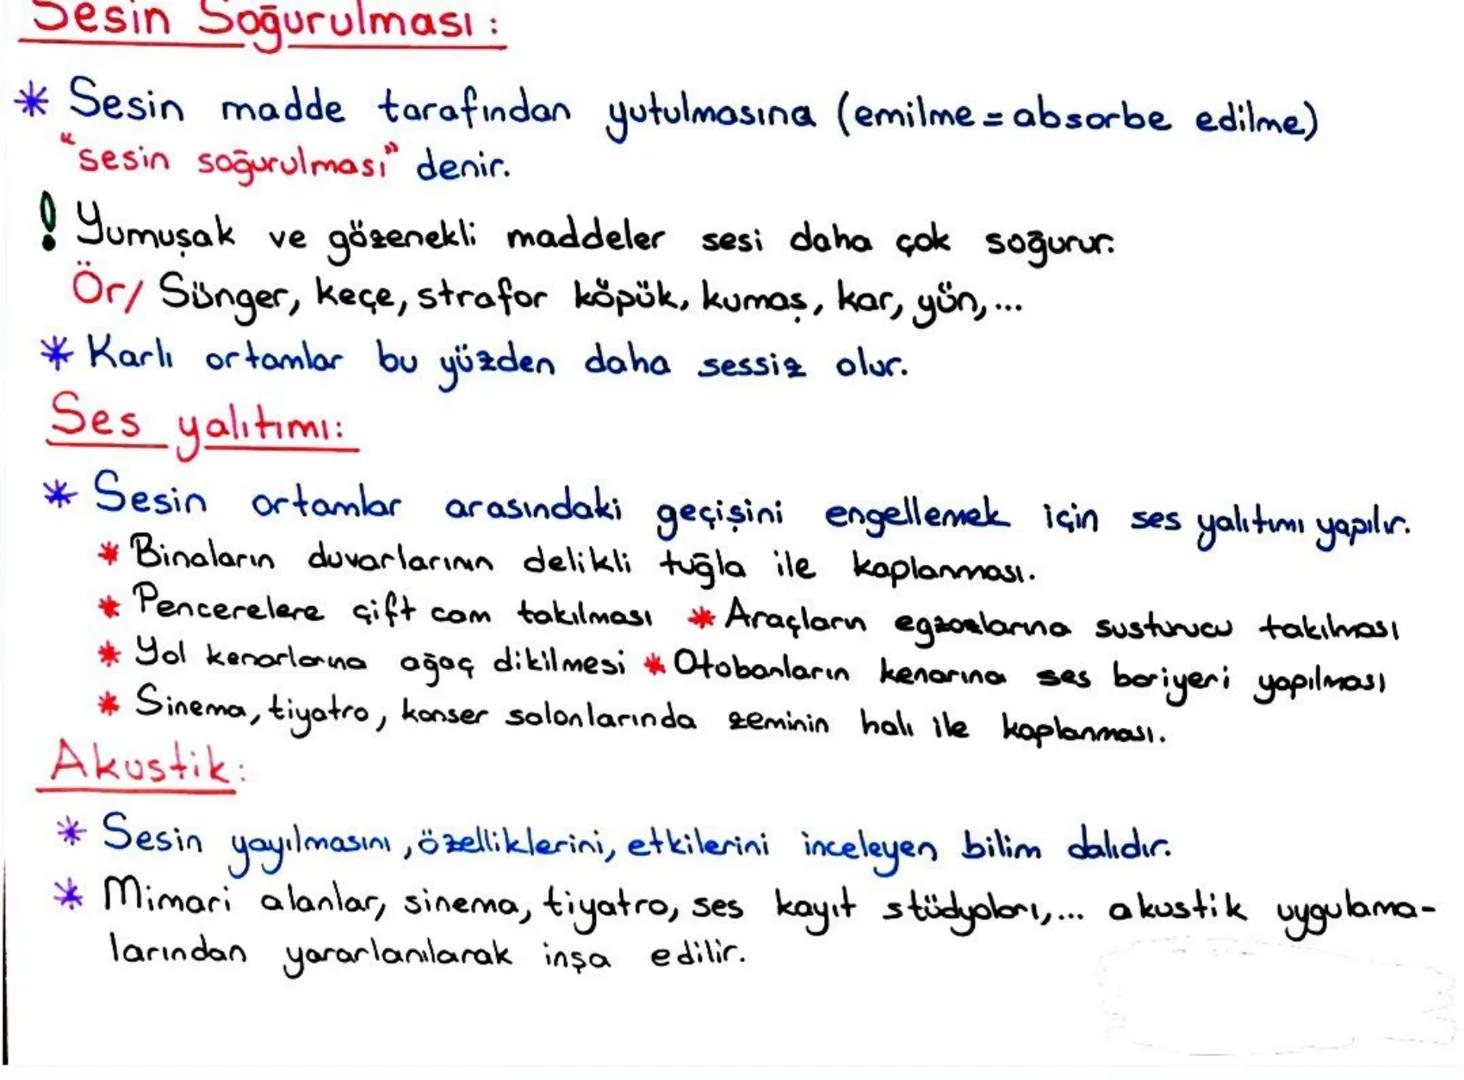 Sesin Soğurulması :
* Sesin madde tarafından yutulmasına (emilme = absorbe edilme)
"sesin soğurulması" denir.
! Yumuşak ve gözenekli maddeler sesi daha çok soğurur.
Ör/ Sünger, keçe, strafor köpük, kumaş, kar, yün, ...
* Karlı ortamlar bu yüzden daha sessiz olur.
Ses yalıtımı:
* Sesin ortamlar arasındaki geçişini engellemek için ses yalıtımı yapılır.
* Binaların duvarlarının delikli tuğla ile kaplanması.
* Pencerelere çift cam takılması * Araçların egzozlarına susturucu takılması
* Yol kenarlarına ağaç dikilmesi * Otobanların kenarına ses bariyeri yapılması
* Sinema, tiyatro, konser salonlarında zeminin halı ile kaplanması.
Akustik:
* Sesin yayılmasını, özelliklerini, etkilerini inceleyen bilim dalıdır.
* Mimari alanlar, sinema, tiyatro, ses kayıt stüdyoları, ... akustik uygulama-
larından yararlanılarak inşa edilir.